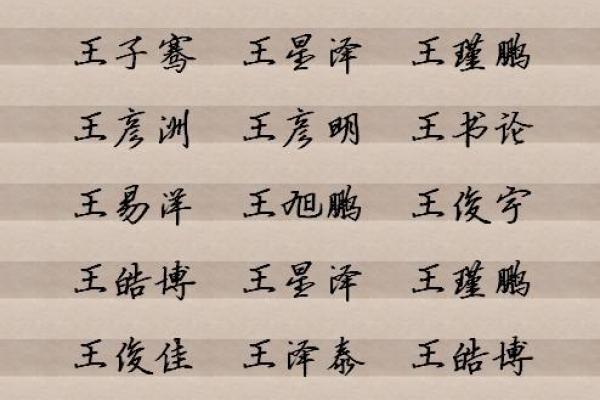 王子骞 王星泽 王瑾鹏
王彦洲 王彦明 王书论
王易洋 王旭鹏 王俊宇
王皓博 王星泽 王瑾鹏
王俊佳 王泽泰 王皓博